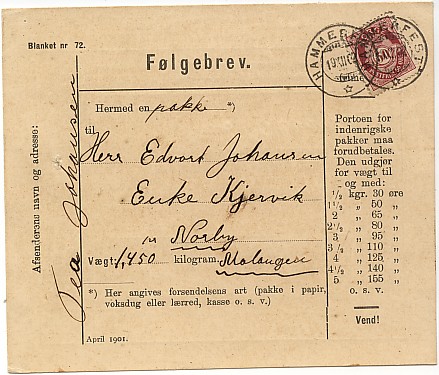 Blanket nr 72.
Følgebrev.
HAMMERFEST
19 XII 0
Afsenderens navn og adresse:
Tea Johansen
Hermed en pakke *)
til
Herr Edvort Johansen
Enke Kjervik
Norby
Vægt: 1,450 kilogram. Malangen
*) Her angives forsendelsens art (pakke i papir,
voksdug eller lærred, kasse o. s. v.)
April 1901.
Portoen for
indenrigske
pakker maa
forudbetales.
Den udgjør
for vægt til
og med:
1/2 kgr. 30 øre
1 1/2 „ 50 „
2 „ 65 „
2 1/2 „ 80 „
3 „ 95 „
3 1/2 „ 110 „
4 „ 125 „
4 1/2 „ 140 „
5 „ 155 „
o. s. v.
Vend!